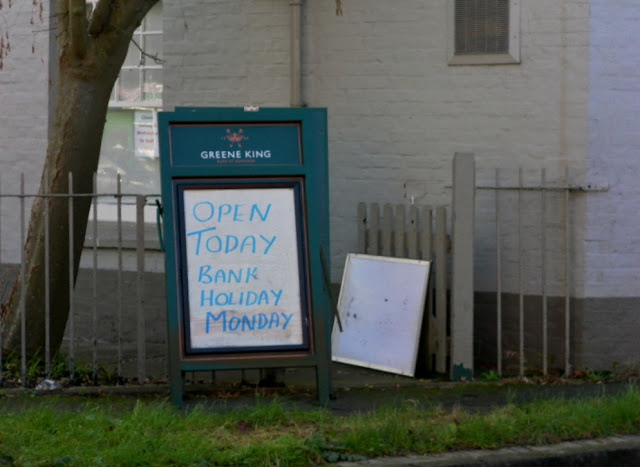 GREENE KING
OPEN
TODAY
BANK
HOLIDAY
MONDAY